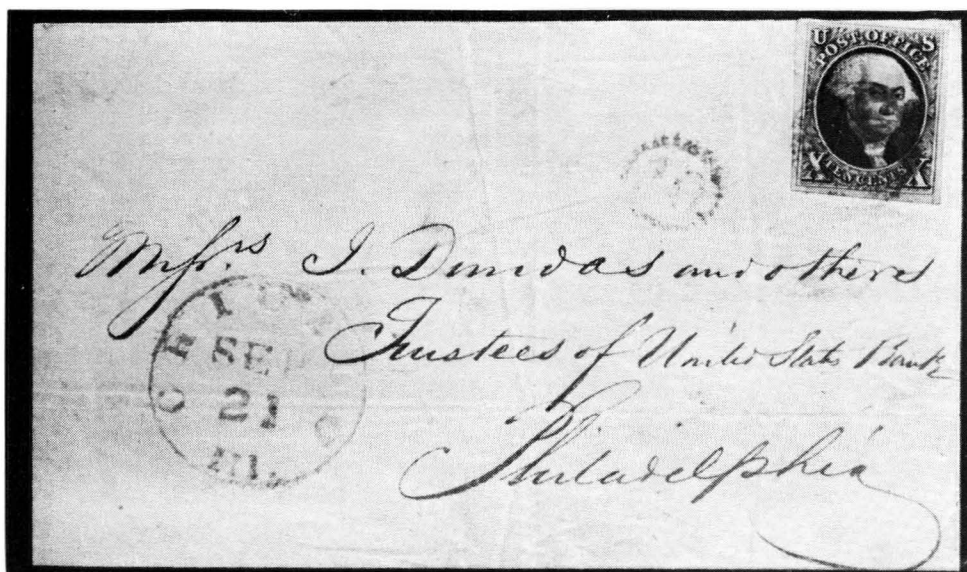 U S
POST OFFICE
X TEN CENTS X
Messrs. J. Dundas and others
Trustees of United States Bank
Philadelphia
CHICAGO
FEB
21
Ill.